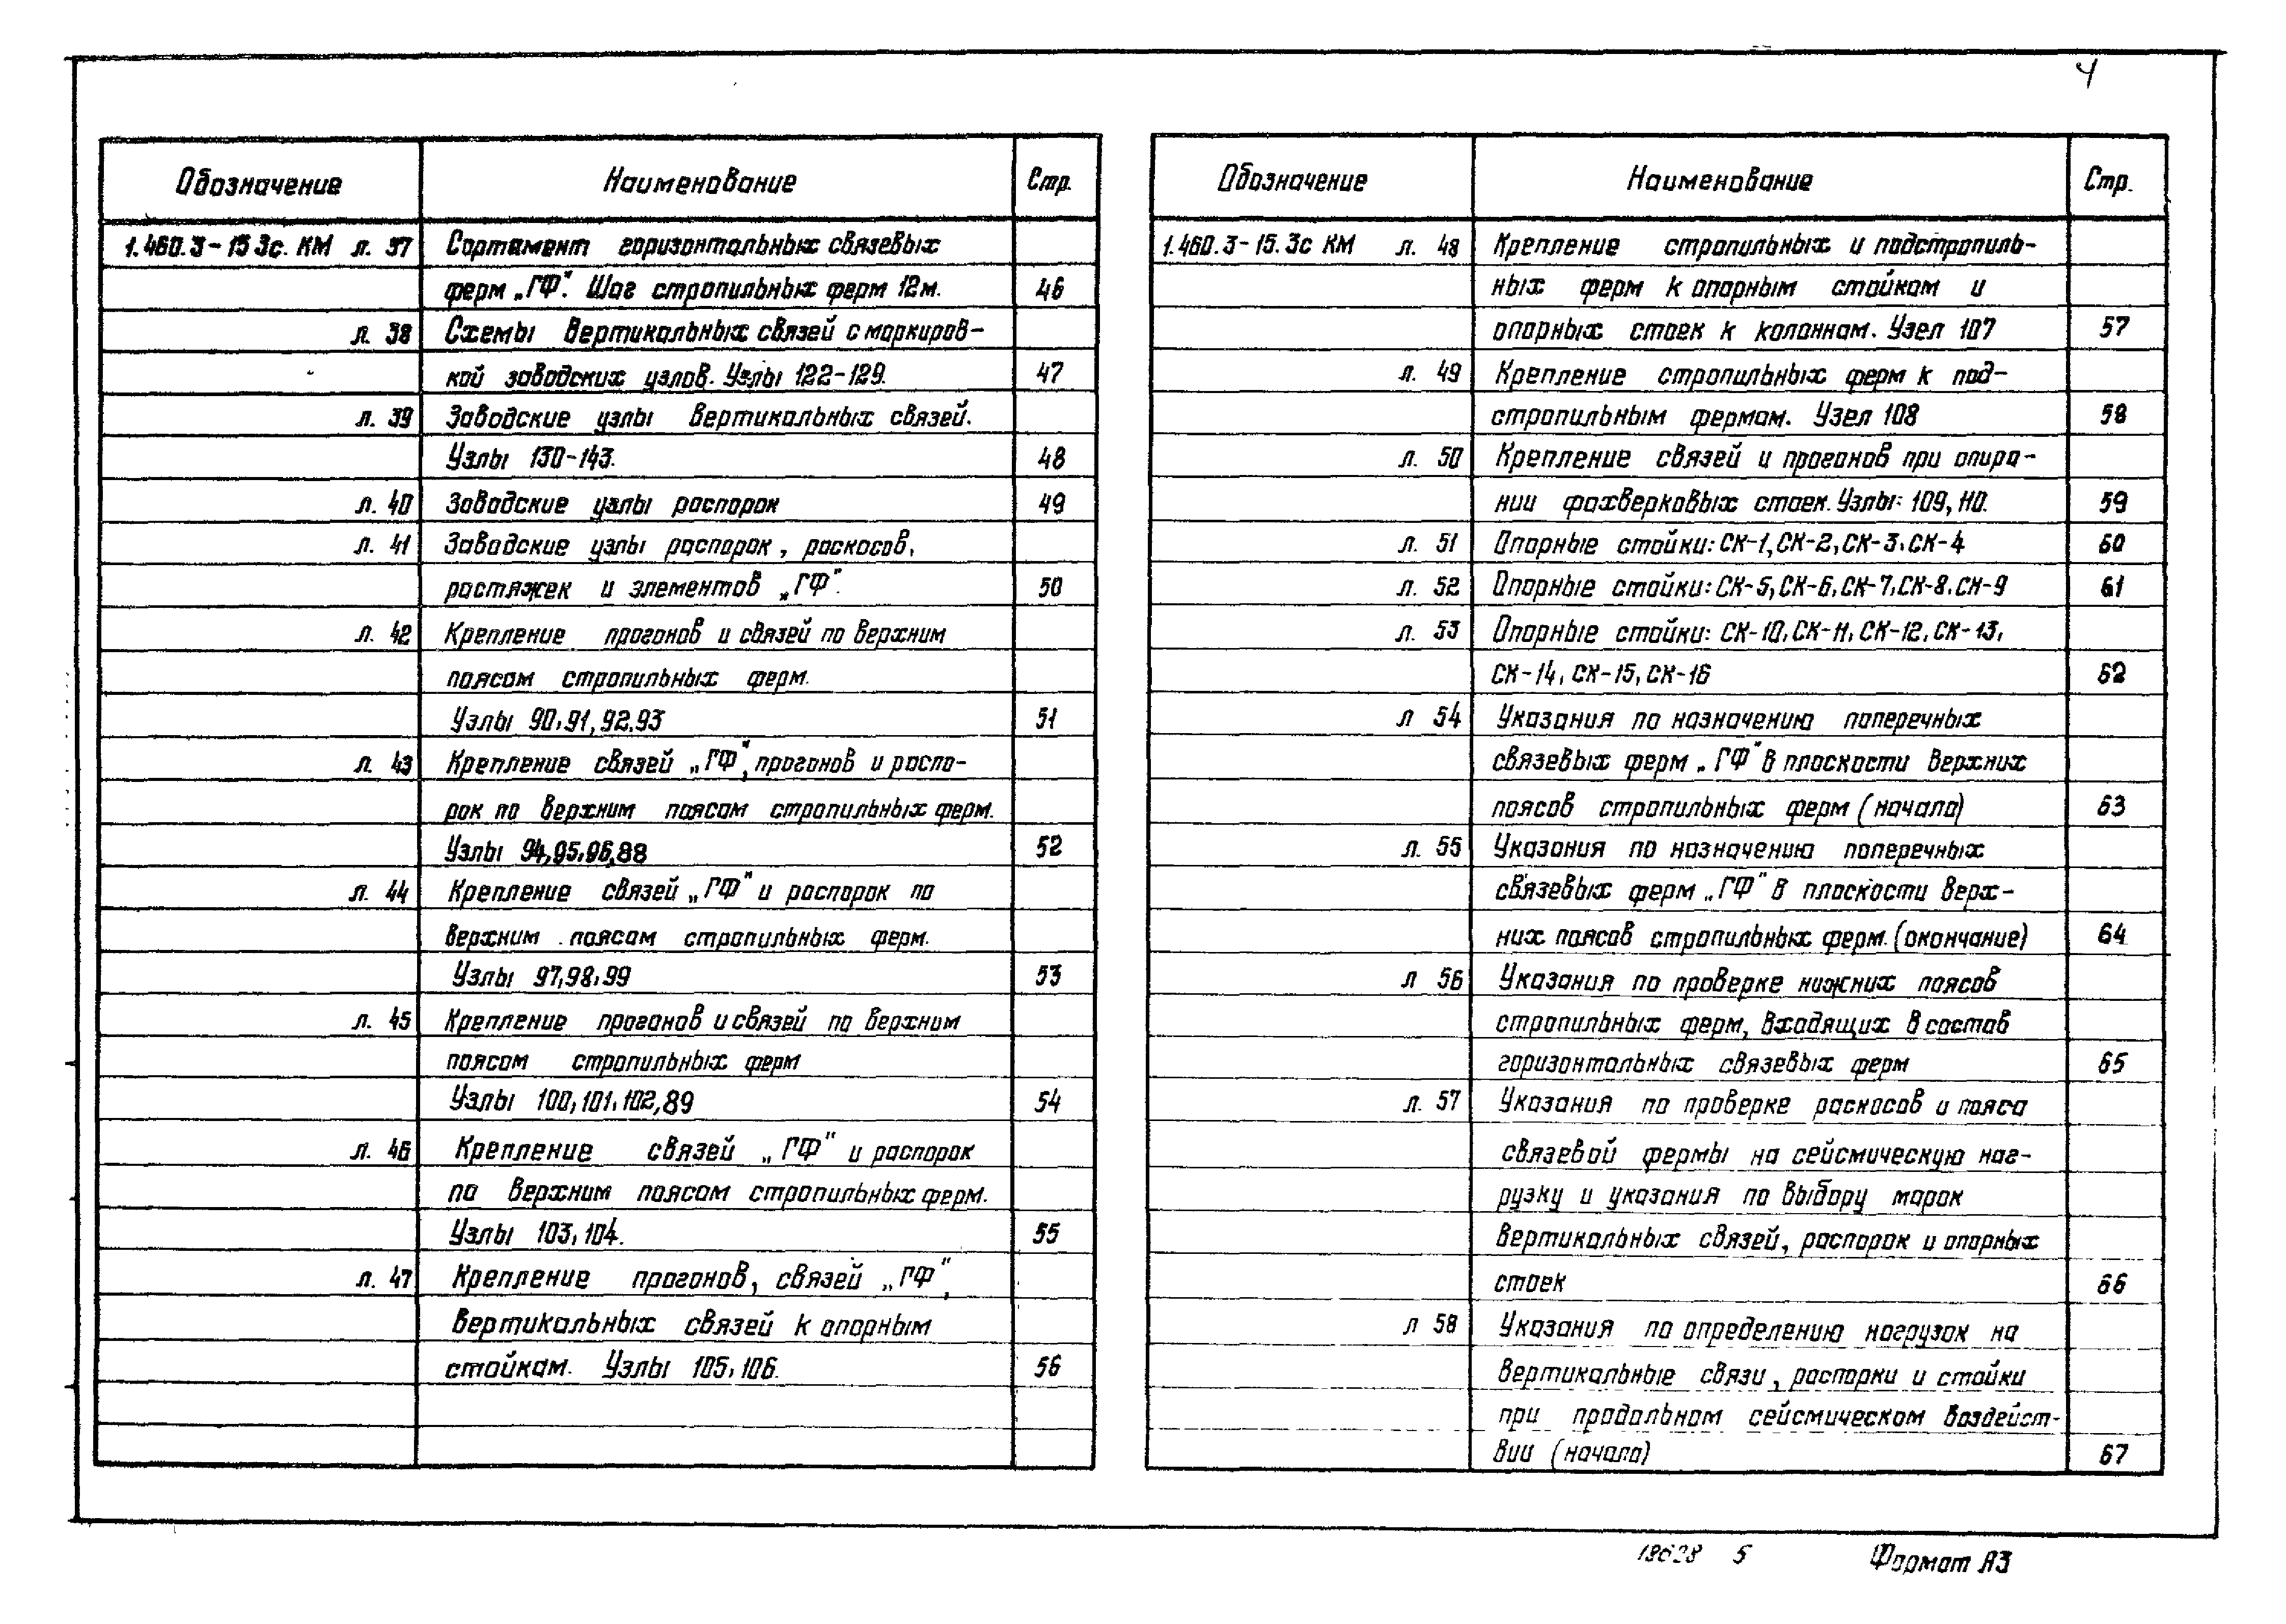 4
Обозначение Наименование Стр.
1.460.3-15 3с. КМ л. 37 Сортамент горизонтальных связевых
ферм „ГФ". Шаг стропильных ферм 12м. 46
л. 38 Схемы вертикальных связей с маркиров-
кой заводских узлов. Узлы 122-129. 47
л. 39 Заводские узлы вертикальных связей.
Узлы 130-143. 48
л. 40 Заводские узлы распорок 49
л. 41 Заводские узлы распорок, раскосов,
растяжек и элементов „ГФ". 50
л. 42 Крепление прогонов и связей по верхним
поясам стропильных ферм.
Узлы 90,91,92,93 51
л. 43 Крепление связей „ГФ", прогонов и распо-
рок по верхним поясам стропильных ферм.
Узлы 94,95,96,88 52
л. 44 Крепление связей „ГФ" и распорок по
верхним поясам стропильных ферм.
Узлы 97,98,99 53
л. 45 Крепление прогонов и связей по верхним
поясам стропильных ферм
Узлы 100,101,102,89 54
л. 46 Крепление связей „ГФ" и распорок
по верхним поясам стропильных ферм.
Узлы 103,104. 55
л. 47 Крепление прогонов, связей „ГФ",
вертикальных связей к опорным
стойкам. Узлы 105,106. 56
Обозначение Наименование Стр.
1.460.3-15.3с КМ л. 48 Крепление стропильных и подстропиль-
ных ферм к опорным стойкам и
опорных стоек к колоннам. Узел 107 57
л. 49 Крепление стропильных ферм к под-
стропильным фермам. Узел 108 58
л. 50 Крепление связей и прогонов при опира-
нии фахверковых стоек. Узлы: 109, 110. 59
л. 51 Опорные стойки: СК-1, СК-2, СК-3, СК-4 60
л. 52 Опорные стойки: СК-5, СК-6, СК-7, СК-8, СК-9 61
л. 53 Опорные стойки: СК-10, СК-11, СК-12, СК-13,
СК-14, СК-15, СК-16 62
л 54 Указания по назначению поперечных
связевых ферм „ГФ" в плоскости верхних
поясов стропильных ферм (начало) 63
л. 55 Указания по назначению поперечных
связевых ферм „ГФ" в плоскости верх-
них поясов стропильных ферм. (окончание) 64
л 56 Указания по проверке нижних поясов
стропильных ферм, входящих в состав
горизонтальных связевых ферм 65
л. 57 Указания по проверке раскосов и пояса
связевой фермы на сейсмическую наг-
рузку и указания по выбору марок
вертикальных связей, распорок и опорных
стоек 66
л 58 Указания по определению нагрузок на
вертикальные связи, распорки и стойки
при продольном сейсмическом воздейст-
вии (начало) 67
5 Формат А3